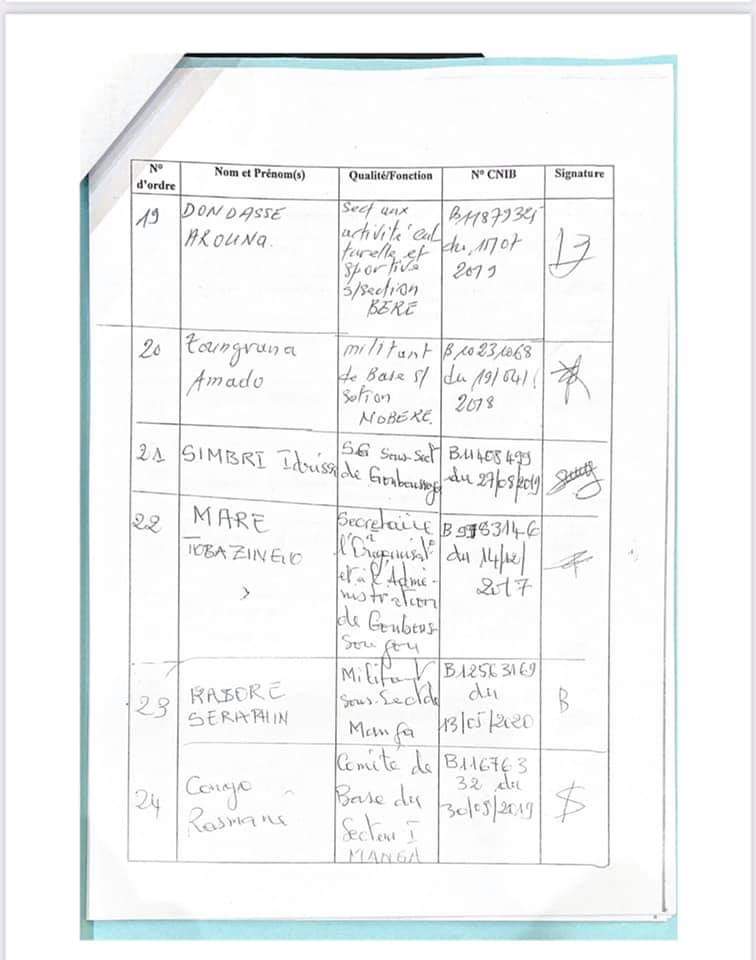 N° d'ordre
Nom et Prénom(s)
Qualité/Fonction
N° CNIB
Signature
19
DONDASSE
AROUNA.
Sect aux
activité cul
turelle et
sportive
s/section
BERE
B11879325
du 15/07
2019
20
Zoungrana
Amado
militant
de Base s/
sction
NOBERE.
B10231068
du 19/04/
2018
21
SIMBRI Idrissa
SG Sous-Sect
de
B11408499
du 27/08/2019
22
MARE
TOBAZINGO
Secretaire
à l'Organisat°
et à l'Admi-
nistration
de Gonbous-
Sougou
B9783146
du 14/12/
2017
23
KABORE
SERAPHIN
Militant
Sous-Sect de
Manga
B12563169
du
13/05/2020
24
Congo
Rasmane
Comité de
Base du
Secteur I
MANGA
B116763
32 du
30/08/2019